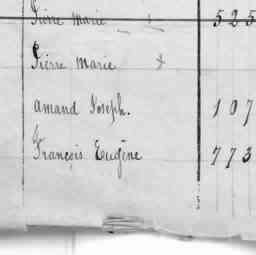 Pierre Marie 525
Pierre Marie
Amand Joseph. 107
François Eugène 773